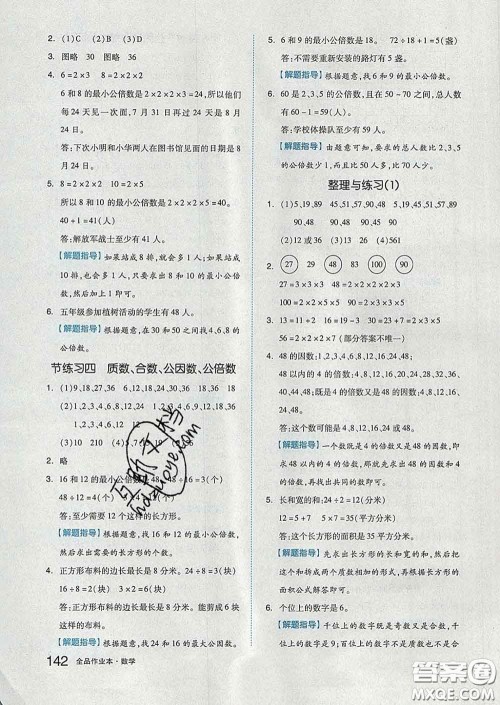 2. (1)C (2)B (3)D
3. 图略 30 图略 36
4. 6=2×3 8=2×2×2
6 和 8 的最小公倍数是 2×2×2×3=24,所以他们
每 24 天见一次面,7 月 31 日再过 24 天是 8 月
24 日。
答:下次小明和小华两人在图书馆见面的日期是 8
月 24 日。
5. 8=2×2×2 10=2×5
8 和 10 的最小公倍数是 2×2×2×5=40
40+1=41(人)
答:解放军战士至少有 41 人。
【解题指导】如果站成 8 排,就会多 1 人;如果站成
10 排,也会多 1 人,只要求出 8 和 10 的最小公倍
数,然后加上 1 即可。
6. 五年级参加植树活动的学生有 48 人。
【解题指导】根据题意,在 30 和 50 之间找 6 和 8 的
公倍数。
节练习四 质数、合数、公因数、公倍数
1. (1)9,18,27,36 6,12,18,24,30,36 18,36
(2)1,2,3,4,6,8,12,24 1,2,3,4,6,9,12,18,36
1,2,3,4,6,12
(3)10 210 (4)5
2. 略
3. 16 和 12 的最小公倍数是 48
48÷16=3(个)
答:至少需要 12 个这样的长方形。
【解题指导】根据题意,找 16 和 12 的最小公倍数,
然后求出长方形的个数。
4. 正方形布料的边长最长是 8 分米。 24÷8=3(块)
16÷8=2(块) 2×3=6(块)
答:正方形布料的边长最长是 8 分米。能剪成 6 块
这样的布料。
【解题指导】根据题意,找 24 和 16 的最大公因数。
5. 6 和 9 的最小公倍数是 18。 72÷18+1=5(盏)
答:不需要重新安装的路灯有 5 盏。
【解题指导】根据题意,找 6 和 9 的公倍数。
6. 60 是 2,3,5 的公倍数,且在 50~70 之间,总人数
有 60-1=59(人)
答:学校体操队至少有 59 人。
【解题指导】由题意可知,要求的总人数比 2,3,5
的公倍数少 1,而且比 50 大,比 70 小。
整理与练习(1)
1. (1)5,19,89 90,48,91,36 90,48,36 5,19,89,91
90,48 90
(2)12 或 36 (3)2 16
2. 27 29 48 83 100 90
27=3×3×3 48=2×2×2×2×3
100=2×2×5×5 90=2×3×3×5
3. 24=5+19 (部分答案不唯一)
4. 48 的因数:1,2,3,4,6,8,12,16,24,48
48 以内的 4 的倍数:4,8,12,16,20,24,28,32,36,
40,44,48
既是 4 的倍数又是 48 的因数:4,8,12,16,24,48
答:这个数可能是 4,8,12,16,24,48。
【解题指导】一个数既是 4 的倍数又是 48 的因数,
48 的最大因数是 48,因此只要求出 48 的因数和
48 以内的 4 的倍数,再从中找出既是 4 的倍数又
是 48 的因数的数即可。
5. 长和宽的和:24÷2=12(分米)
12=5+7 5×7=35(平方分米)
答:这个长方形的面积是 35 平方分米。
【解题指导】先求出长方形的长和宽的和,然后把
和拆成两个不同的质数相加的形式,再求面积即可。
6. 个位上的数字是 6。
【解题指导】千位上的数字既是奇数又是合数,
是 9;百位上的数字不是质数也不是合数,是 1;
142 全品作业本·数学
答案圈
MXQE.COM